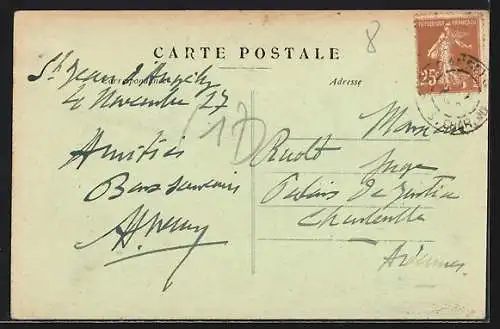 8
CARTE POSTALE
Correspondance
Adresse
REPUBLIQUE FRANÇAISE
25c
St Jean d'Angély
4 Novembre 27
17
Amitiés
Bons souvenirs
Monsieur
Ruolt
Juge
Palais de Justice
Charleville
Ardennes